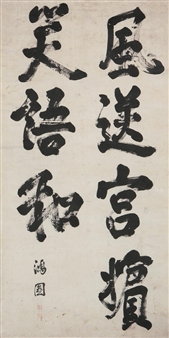 風送宮嬪
笑語和
鴻